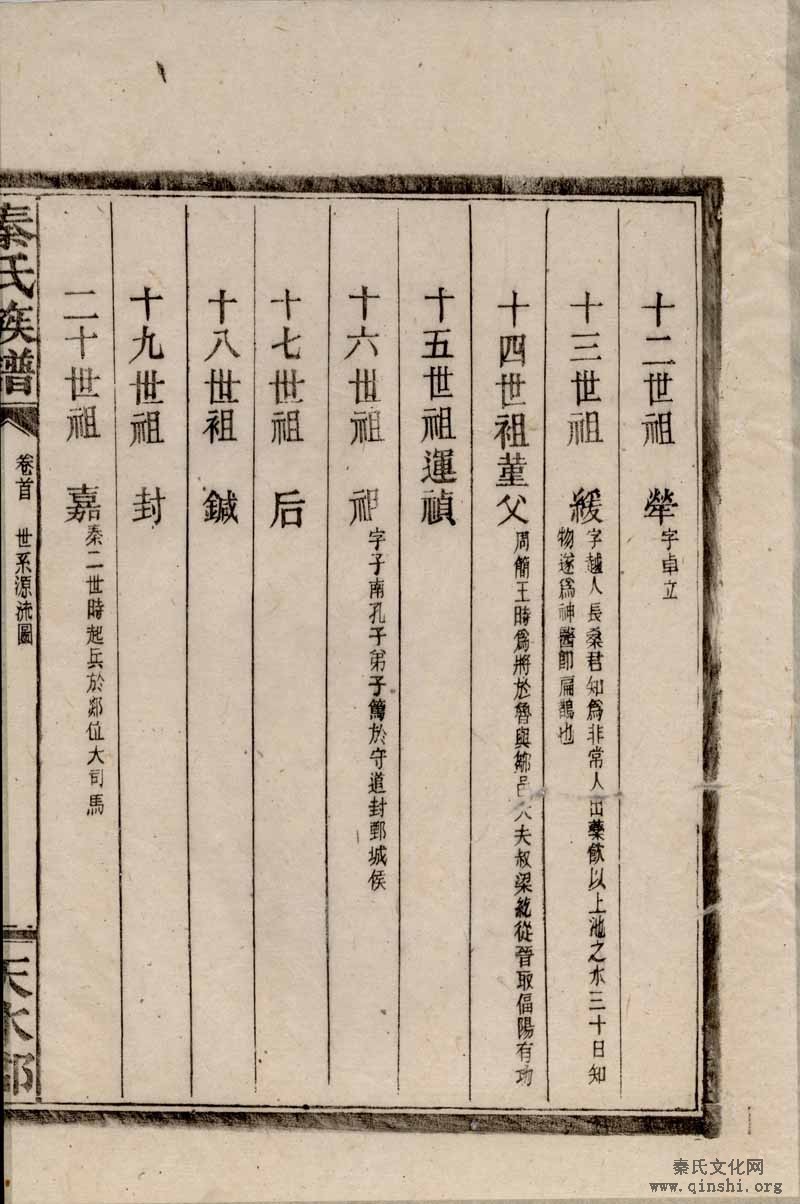 十二世祖 犖 字卓立
十三世祖 緩 字越人長桑君知爲非常人出藥飲以上池之水三十日知
物遂爲神醫卽扁鵲也
十四世祖 菫父 周簡王時爲將於魯與鄒邑大夫叔梁紇從晉取偪陽有功
十五世祖 運禎
十六世祖 祖 字子南孔子弟子篤於守道封鄄城侯
十七世祖 后
十八世祖 鍼
十九世祖 封
二十世祖 嘉 秦二世時起兵於郯位大司馬
秦氏族譜 卷首 世系源流圖 天水郡
秦氏文化网
www.qinshi.org